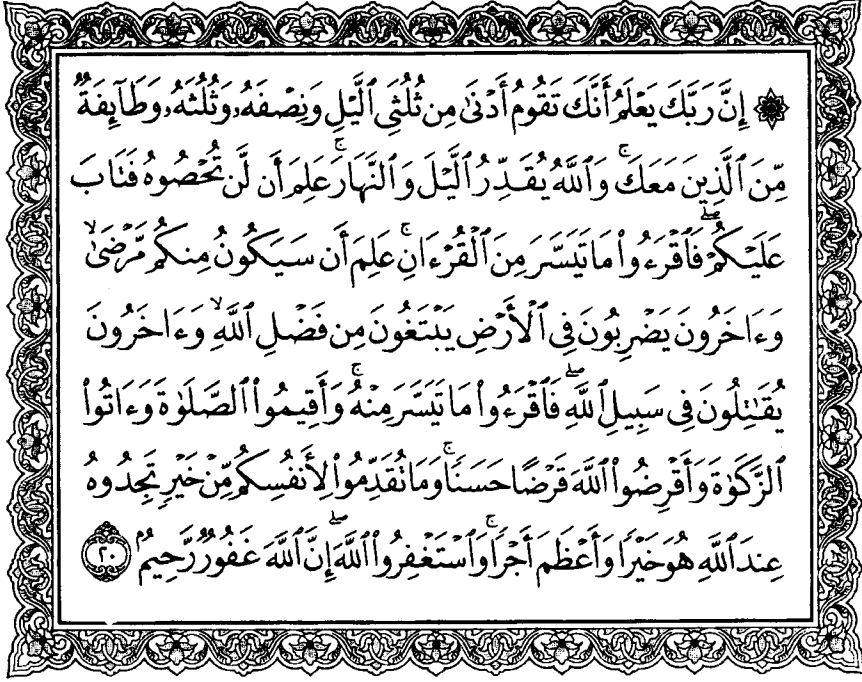 ۞ إِنَّ رَبَّكَ يَعْلَمُ أَنَّكَ تَقُومُ أَدْنَىٰ مِن ثُلُثَىِ ٱلَّيْلِ وَنِصْفَهُۥ وَثُلُثَهُۥ وَطَآئِفَةٌ
مِّنَ ٱلَّذِينَ مَعَكَ ۚ وَٱللَّهُ يُقَدِّرُ ٱلَّيْلَ وَٱلنَّهَارَ ۚ عَلِمَ أَن لَّن تُحْصُوهُ فَتَابَ
عَلَيْكُمْ ۖ فَٱقْرَءُوا۟ مَا تَيَسَّرَ مِنَ ٱلْقُرْءَانِ ۚ عَلِمَ أَن سَيَكُونُ مِنكُم مَّرْضَىٰ ۙ
وَءَاخَرُونَ يَضْرِبُونَ فِى ٱلْأَرْضِ يَبْتَغُونَ مِن فَضْلِ ٱللَّهِ ۙ وَءَاخَرُونَ
يُقَٰتِلُونَ فِى سَبِيلِ ٱللَّهِ ۖ فَٱقْرَءُوا۟ مَا تَيَسَّرَ مِنْهُ ۚ وَأَقِيمُوا۟ ٱلصَّلَوٰةَ وَءَاتُوا۟
ٱلزَّكَوٰةَ وَأَقْرِضُوا۟ ٱللَّهَ قَرْضًا حَسَنًا ۚ وَمَا تُقَدِّمُوا۟ لِأَنفُسِكُم مِّنْ خَيْرٍ تَجِدُوهُ
عِندَ ٱللَّهِ هُوَ خَيْرًا وَأَعْظَمَ أَجْرًا ۚ وَٱسْتَغْفِرُوا۟ ٱللَّهَ ۖ إِنَّ ٱللَّهَ غَفُورٌ رَّحِيمٌۢ ٢٠